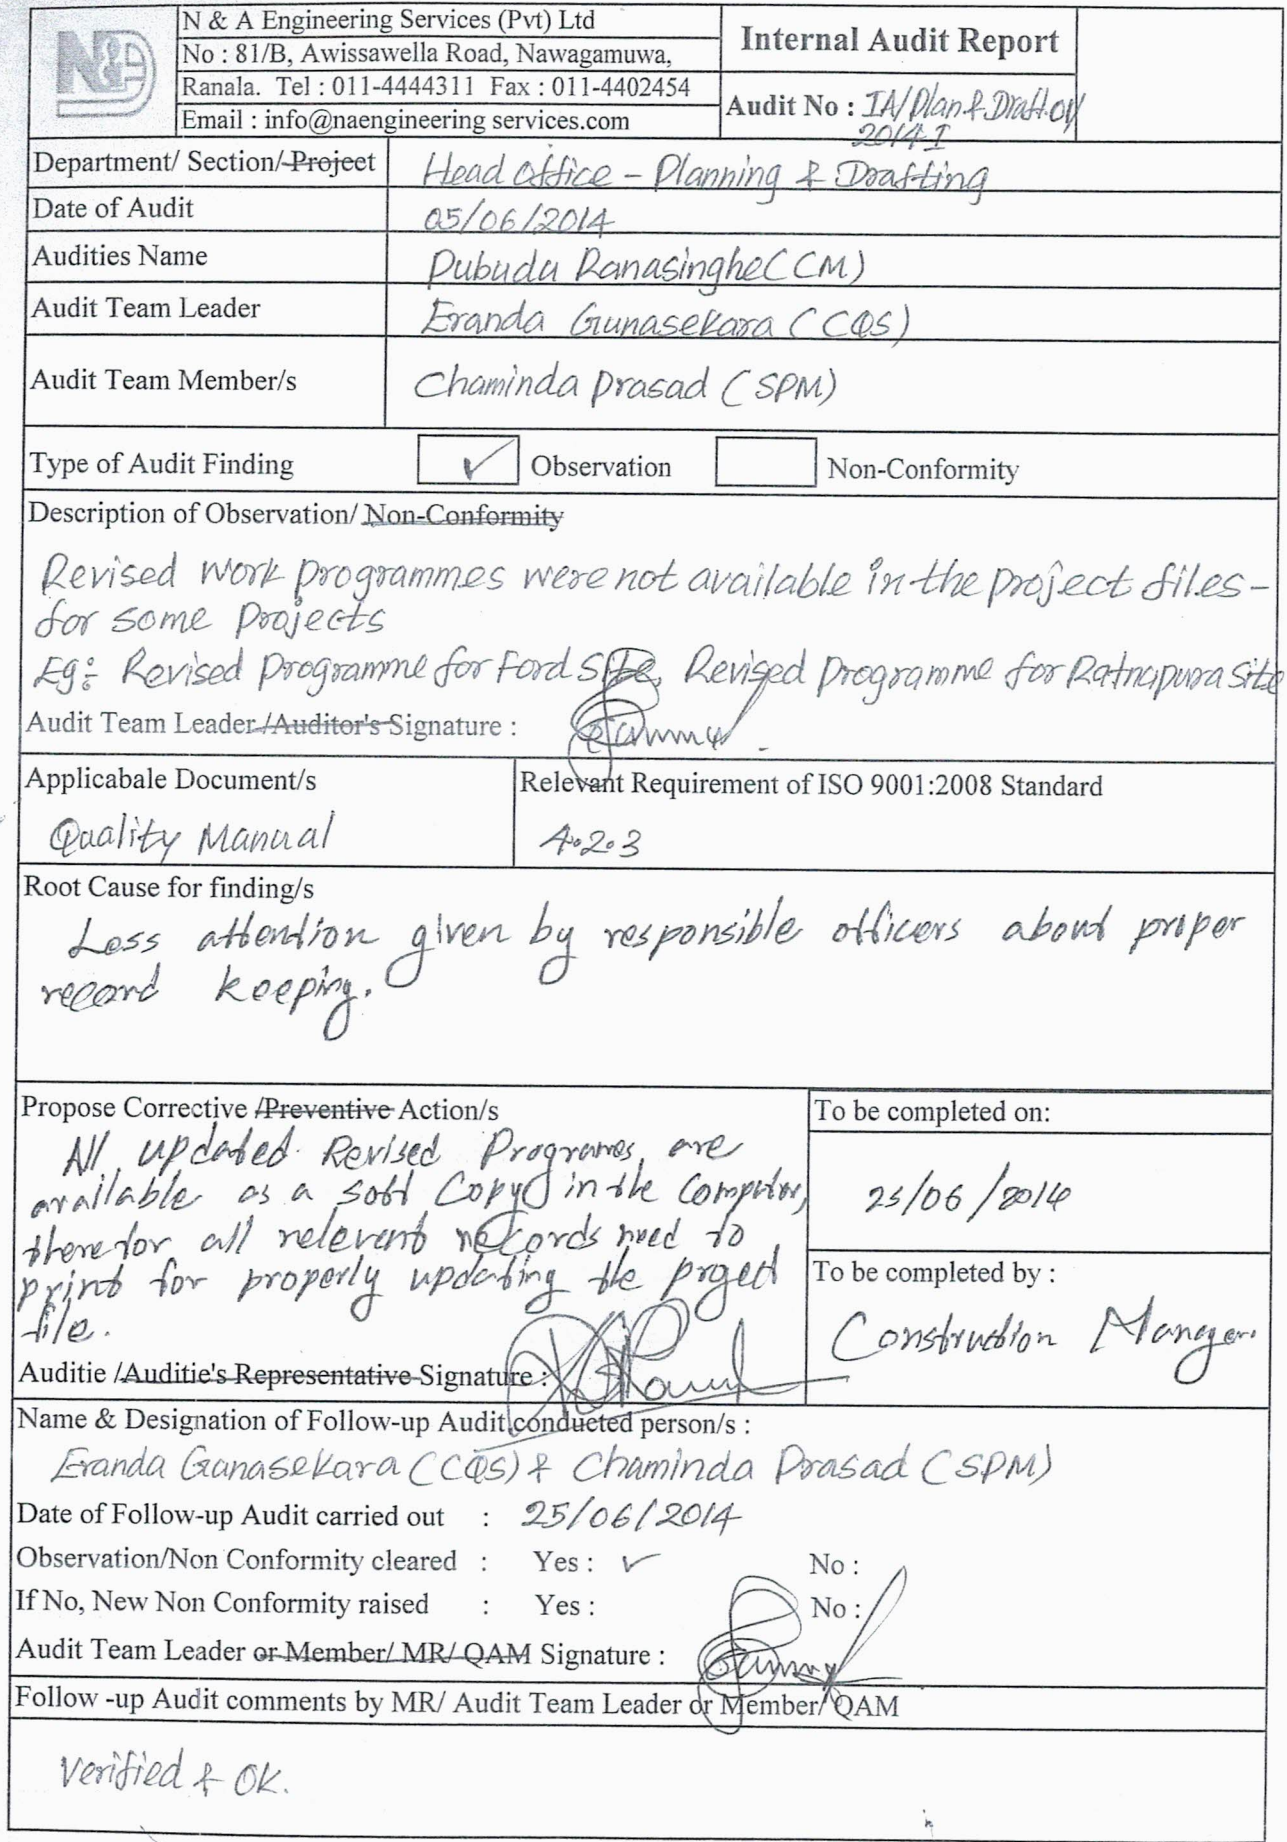 N & A Engineering Services (Pvt) Ltd
No : 81/B, Awissawella Road, Nawagamuwa,
Ranala. Tel : 011-4444311 Fax : 011-4402454
Email : info@naengineering services.com
Internal Audit Report
Audit No : IA/Plan & Draft/01/
2014-I
Department/ Section/ Project Head Office - Planning & Drafting
Date of Audit 05/06/2014
Audities Name Pubudu Ranasinghe (CM)
Audit Team Leader Eranda Gunasekara (CQS)
Audit Team Member/s Chaminda Prasad (SPM)
Type of Audit Finding ✓ Observation Non-Conformity
Description of Observation/ Non-Conformity
Revised work programmes were not available in the project files -
for some projects
Eg:- Revised Programme for Ford Site, Revised programme for Ratnapura site
Audit Team Leader /Auditor's Signature :
Applicabale Document/s
Quality Manual
Relevant Requirement of ISO 9001:2008 Standard
4.2.3
Root Cause for finding/s
Less attention given by responsible officers about proper
record keeping.
Propose Corrective /Preventive Action/s
All updated Revised Programes are
available as a soft copy in the computer,
therefor all relevent records need to
print for properly updating the project
file.
Auditie /Auditie's Representative Signature :
To be completed on:
25/06/2014
To be completed by :
Construction Manager.
Name & Designation of Follow-up Audit conducted person/s :
Eranda Gunasekara (CQS) & Chaminda Prasad (SPM)
Date of Follow-up Audit carried out : 25/06/2014
Observation/Non Conformity cleared : Yes : ✓ No :
If No, New Non Conformity raised : Yes : No :
Audit Team Leader or Member/ MR/ QAM Signature :
Follow -up Audit comments by MR/ Audit Team Leader or Member/ QAM
Verified & OK.